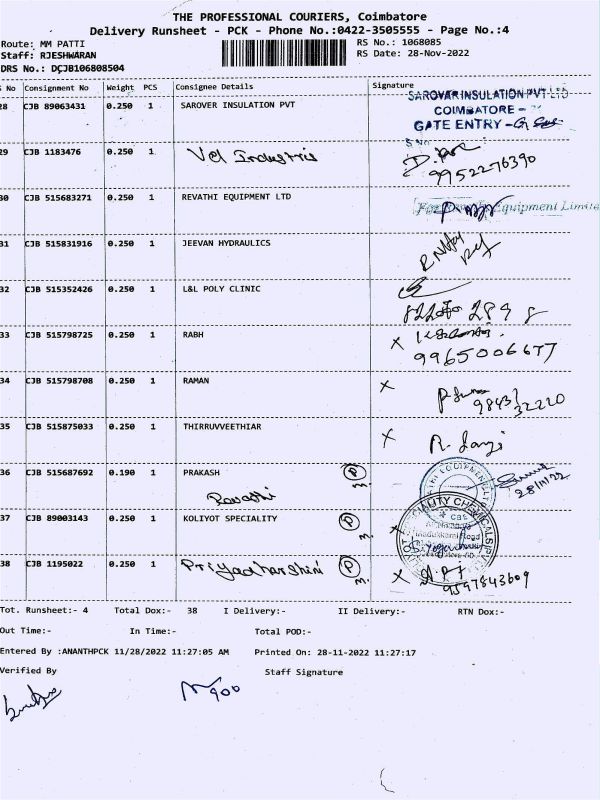 THE PROFESSIONAL COURIERS, Coimbatore
Delivery Runsheet - PCK - Phone No.:0422-3505555 - Page No.:4
Route: MM PATTI
RS No.: 1068085
Staff: RJESHWARAN
RS Date: 28-Nov-2022
DRS No.: DCJB106808504
S No Consignment No Weight PCS Consignee Details Signature
28 CJB 89063431 0.250 1 SAROVER INSULATION PVT
SAROVAR INSULATION PVT LTD
COIMBATORE -
GATE ENTRY -
S No
29 CJB 1183476 0.250 1 Vel Industris
9952276390
30 CJB 515683271 0.250 1 REVATHI EQUIPMENT LTD
Equipment Limite
31 CJB 515831916 0.250 1 JEEVAN HYDRAULICS
32 CJB 515352426 0.250 1 L&L POLY CLINIC
33 CJB 515798725 0.250 1 RABH X
9965006677
34 CJB 515798708 0.250 1 RAMAN X
98431 32220
35 CJB 515875033 0.250 1 THIRRUVVEETHIAR X
36 CJB 515687692 0.190 1 PRAKASH P
Revathi m.
28/11/22
37 CJB 89003143 0.250 1 KOLIYOT SPECIALITY P
m.
38 CJB 1195022 0.250 1 Priyadharshini P X
m. 9597843609
Tot. Runsheet:- 4 Total Dox:- 38 I Delivery:- II Delivery:- RTN Dox:-
Out Time:- In Time:- Total POD:-
Entered By :ANANTHPCK 11/28/2022 11:27:05 AM Printed On: 28-11-2022 11:27:17
Verified By Staff Signature